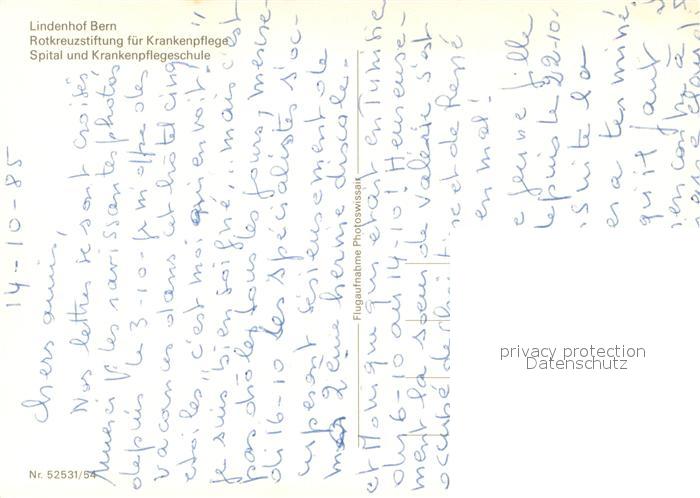 Lindenhof Bern
Rotkreuzstiftung für Krankenpflege
Spital und Krankenpflegeschule
14-10-85
Chers amis,
Nos lettres se sont croisés
Merci Vi les ravissantes photos
depuis le 3-10- je m'offre des
vacances dans cet hôtel cinq
étoiles" c'est moi qui en voit!"
je suis bien soigné,... mais c'est
pas drôle tous les jours, mercre-
di 16-10 des spécialistes s'oc-
cuperont sérieusement de
ma 2ème hernie discale.-
et Monique qui était en Tunisie
du 6-10 au 14-10! Heureuse-
ment la soeur de Valérie s'est
occupé de et de René
en mai.
e jeune fille
depuis 22-10.
suite la
a terminé
qu'il faut
encor
Flugaufnahme Photoswissair
privacy protection
Datenschutz
Nr. 52531/54